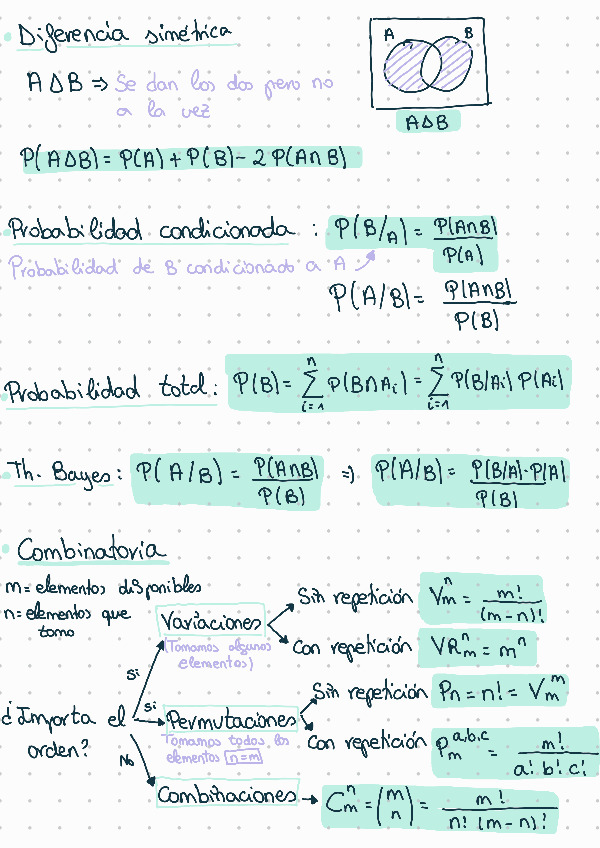 Diferencia simétrica
A Δ B ⇒ Se dan los dos pero no
a la vez
A B
A Δ B
P(A Δ B) = P(A) + P(B) - 2 P(A∩B)
Probabilidad condicionada : P(B/A) = P(A∩B) / P(A)
Probabilidad de B condicionado a A
P(A/B) = P(A∩B) / P(B)
Probabilidad total: P(B) = Σ_{i=1}^{n} P(B∩Ai) = Σ_{i=1}^{n} P(B/Ai) P(Ai)
Th. Bayes: P(A/B) = P(A∩B) / P(B) ⇒ P(A/B) = P(B/A)·P(A) / P(B)
Combinatoria
m= elementos disponibles
n= elementos que
tomo
¿Importa el
orden?
Si
Variaciones
(Tomamos algunos
elementos)
Sin repetición V_m^n = m! / (m-n)!
Con repetición VR_m^n = m^n
Si
Permutaciones
Tomamos todos los
elementos n=m
Sin repetición Pn = n! = V_m^m
Con repetición P_m^{a,b,c} = m! / a! b! c!
No
Combinaciones → C_m^n = (m n) = m! / n! (m-n)!